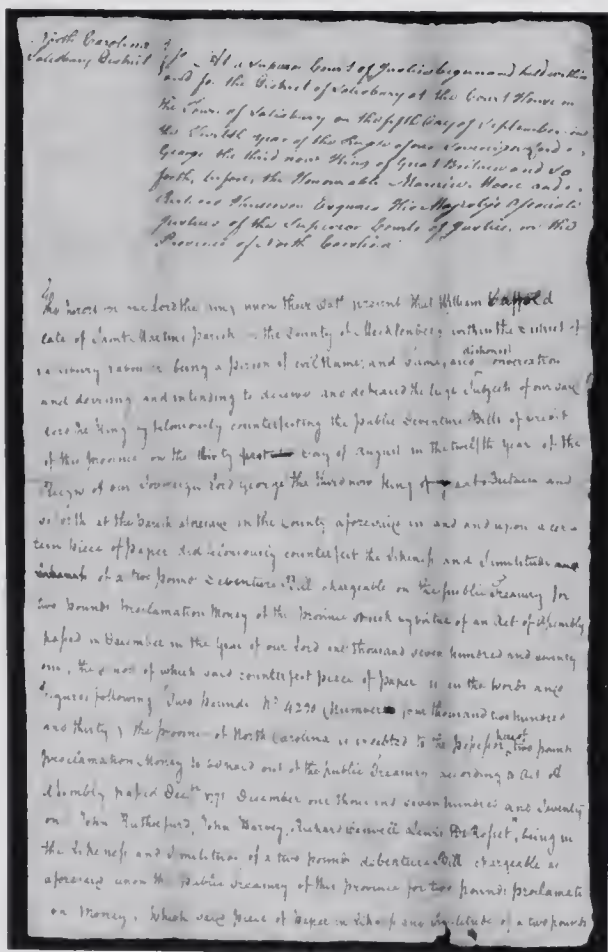 North Carolina
Salisbury District
} ss At a Superior Court of Justice begun and held within
and for the District of Salisbury at the Court House in
the Town of Salisbury on the fifth Day of September in
the twelfth Year of the Reign of our Sovereign Lord
George the third now King of Great Britain and so
forth, before, the Honourable Maurice Moore and
Richard Henderson Esquires His Majesty's Associate
Justices of the Superior Courts of Justice, in the
Province of North Carolina
The Jurors for our Lord the King upon their Oath present that William
late of Saint Martins parish in the County of Mecklenberg within the District of
Salisbury Labourer being a person of evil Name, and Fame, and dishonest Conversation
and devising and intending to deceive and defraud the liege Subjects of our said
Lord the King by feloniously counterfeiting the public Debenture Bills of Credit
of this province on the thirty first day of August in the twelfth Year of the
Reign of our Sovereign Lord George the third now King of great Britain and
so forth at the parish aforesaid in the County aforesaid in and and upon a cer
tain piece of paper did feloniously counterfeit the likeness and Similitude
of a two pound Debenture Bill chargeable on the public Treasury for
two pounds Proclamation Money of the province struck by virtue of an Act of Assembly
passed in December in the Year of our Lord one thousand seven hundred and seventy
one, the of which said counterfeit piece of paper is in the words and
Figures following Two Pounds No 4230 (Number four thousand two hundred
and thirty) the province of North Carolina is indebted to the possessor hereof two pounds
proclamation Money to be paid out of the public Treasury according to Act of
Assembly passed Decr 1771 December one thousand seven hundred and seventy
one John Rutherfurd, John Harvey, Richard Caswell Lewis De Rosset", being in
the likeness and Similitude of a two pounds debenture Bill chargeable as
aforesaid upon the public Treasury of this province for two pounds proclamati
on Money, Which said piece of paper in likeness and Similitude of a two pounds